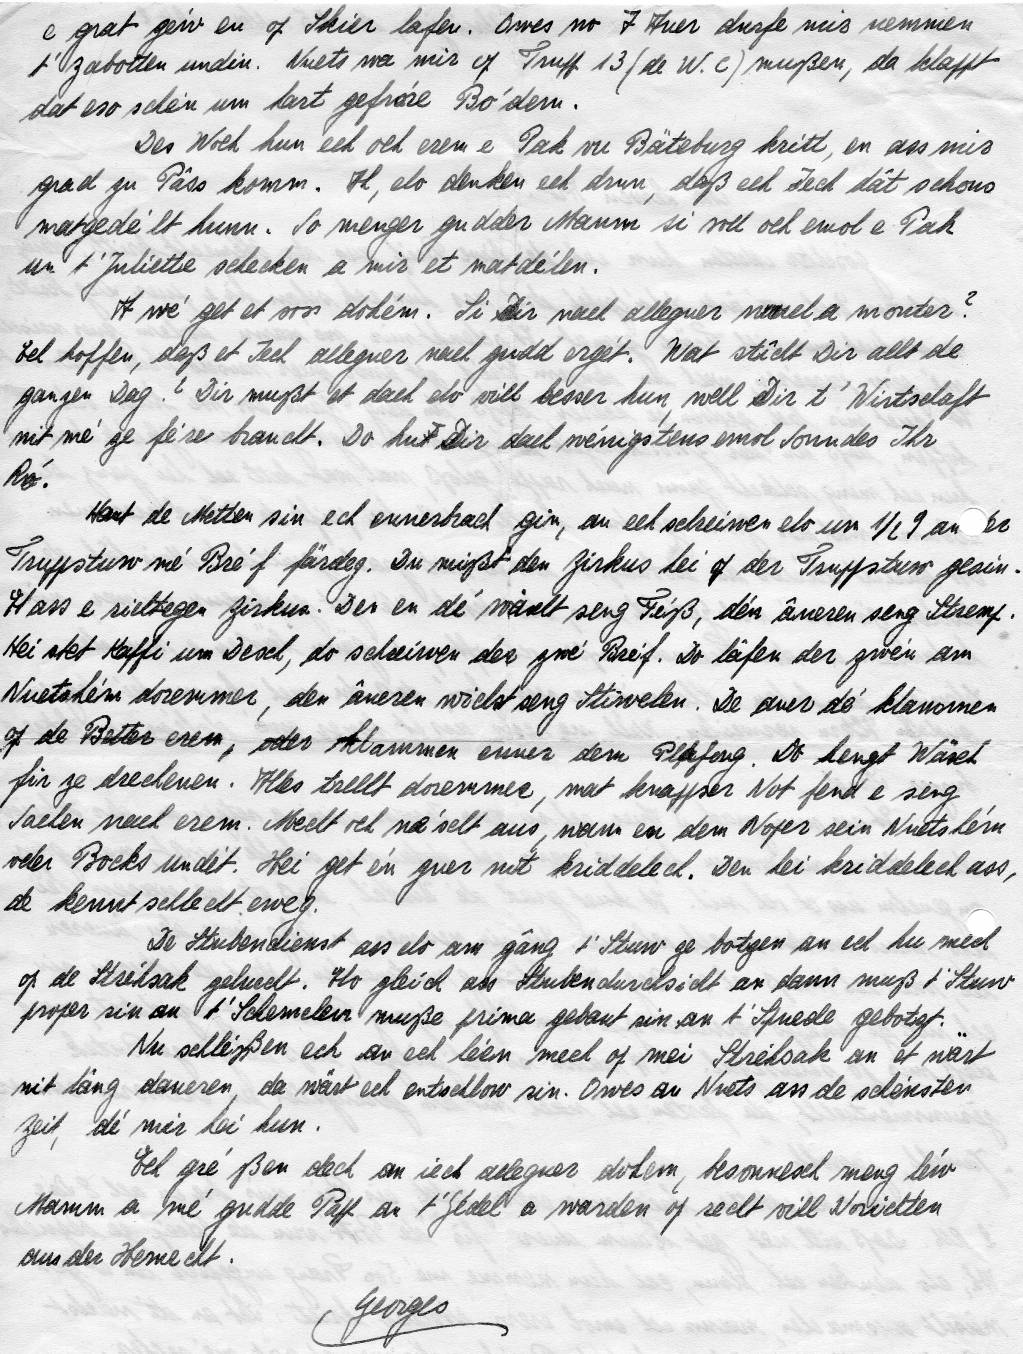 e grat géiv en of Skier lafen. Owes no 7 Auer durfe mir nemmen
t' Zabotten undin. Nuets wa mir of Trupp 13 (de W.C) mußen, da klappt
dat eso schén um hart gefróre Bo'dem.
Des Woch hun ech och erem e Pak vu Bäteburg kritt, en ass mir
grad zu Pâss komm. A, elo denken ech drun, daß ech Iech dât schons
matgedélt hunn. So menger gudder Mamm si soll och emol e Pak
un t'Juliette schecken a mir et matdélen.
A wé get et soss dohém. Si Dir nach alleguer munel a monter?
Ech hoffen, daß et Iech alleguer nach gudd ergét. Wat stécht Dir allt de
ganzen Dag? Dir mußt et dach elo vill besser hun, well Dir t' Wirtschaft
nit mé ze fére braucht. Do hut Dir dach wénigstens emol Sonndes Ihr
Ró.
Haut de Metten sin ech ennerbrach gin, an ech schreiwen elo um 1/2 9 an er
Truppstuw mé Bréf färdeg. Du mißt den Zirkus hei of der Truppstuw gesin.
Et ass e richtegen Zirkus. Den en dé wäscht seng Féiß, dén âneren seng Stremp.
Hei stet Kaffi um Desch, do schreiwen der zwé Bréf. Do läfen der zwén am
Nuetshém doremmer, den âneren wichst seng Stiwelen. De aner dé klammen
of de Better erem, oder klammen enner dem Plafong. Do hengt Wäsch
fir ze drechenen. Alles trellt doremmer, mat knapper Not fend e seng
Sachen nach erem. Mecht och náischt aus, wann en dem Noper sein Nuetshém
oder Bocks undét. Hei get én guer nit kriddelech. Den hei kriddelech ass,
de kennt schlecht eweg.
De Stubendienst ass elo am gâng t' Stuw ze botzen an ech hu mech
op de Stréhsak geluecht. Ho gleich ass Stubendurchsicht an dann muß t' Stuw
proper sin an t' Schemelen muße prima gebaut sin an t' Spuede gebotzt.
Nu schléißen ech an ech léen mech op méi Stréhsak an et wärt
nit läng daueren, da wärt ech entschlow sin. Owes an Nuets ass de schénsten
Zeit, dé mir hei hun.
Ech gré ßen dech an iech alleguer dohem, besonnesch meng léiw
Mamm a mé gudde Papp an t' Jedel a warden of recht vill Norichten
aus der Hemecht.
Georges